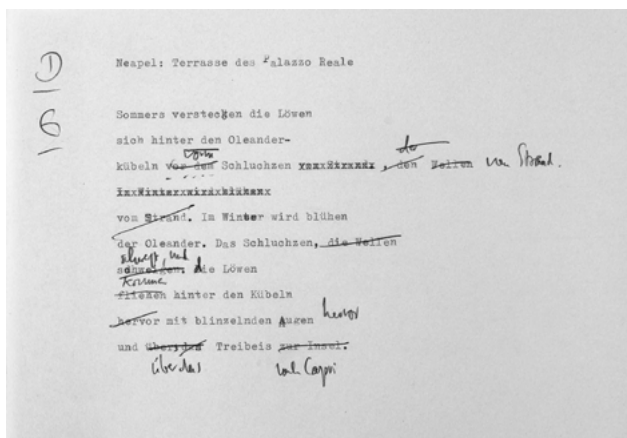 D
6
Neapel: Terrasse des Palazzo Reale
Sommers verstecken die Löwen
sich hinter den Oleander-
vorm der
kübeln vor dem Schluchzen von Strand, , den Wellen von Strand.
Im Winter wird blühen
vom Strand. Im Winter wird blühen
der Oleander. Das Schluchzen, die Wellen
schweigt, und
schweigen. die Löwen
Komme
fliehen hinter den Kübeln
hervor mit blinzelnden Augen hervor
und über den Treibeis zur Insel.
über das nach Capri